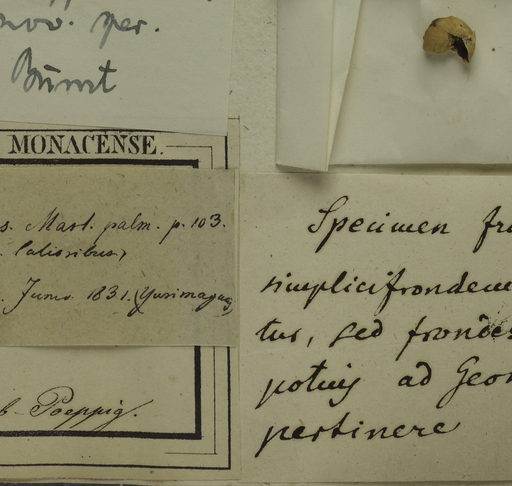 nov. per.
Burret
MONACENSE.
s. Mart. palm. p. 103.
latioribus,
Juno 1831. (Yurimaguas)
Poeppig.
Specimen
simplicifrondem
tur, sed frondes
potius ad Geon
pertinere